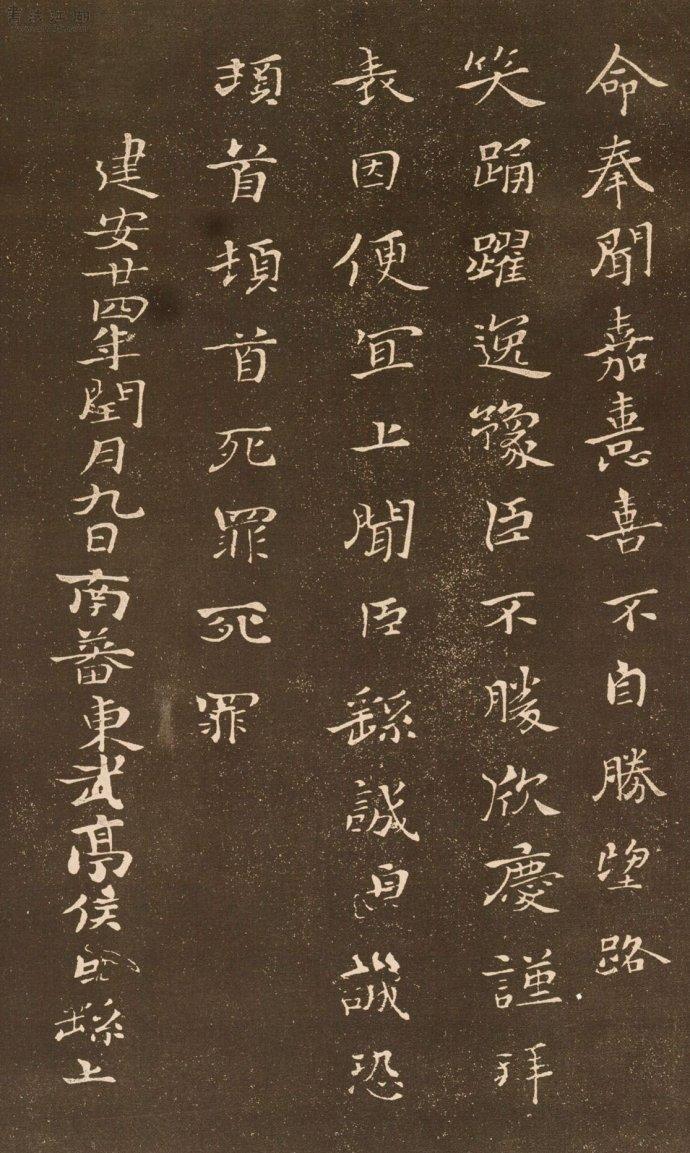 命奉聞嘉憙喜不自勝望路
笑踊躍逸豫臣不勝欣慶謹拜
表因便宜上聞臣繇誠誠恐
頓首頓首死罪死罪
建安廿四年閏月九日南蕃東武亭侯臣繇上